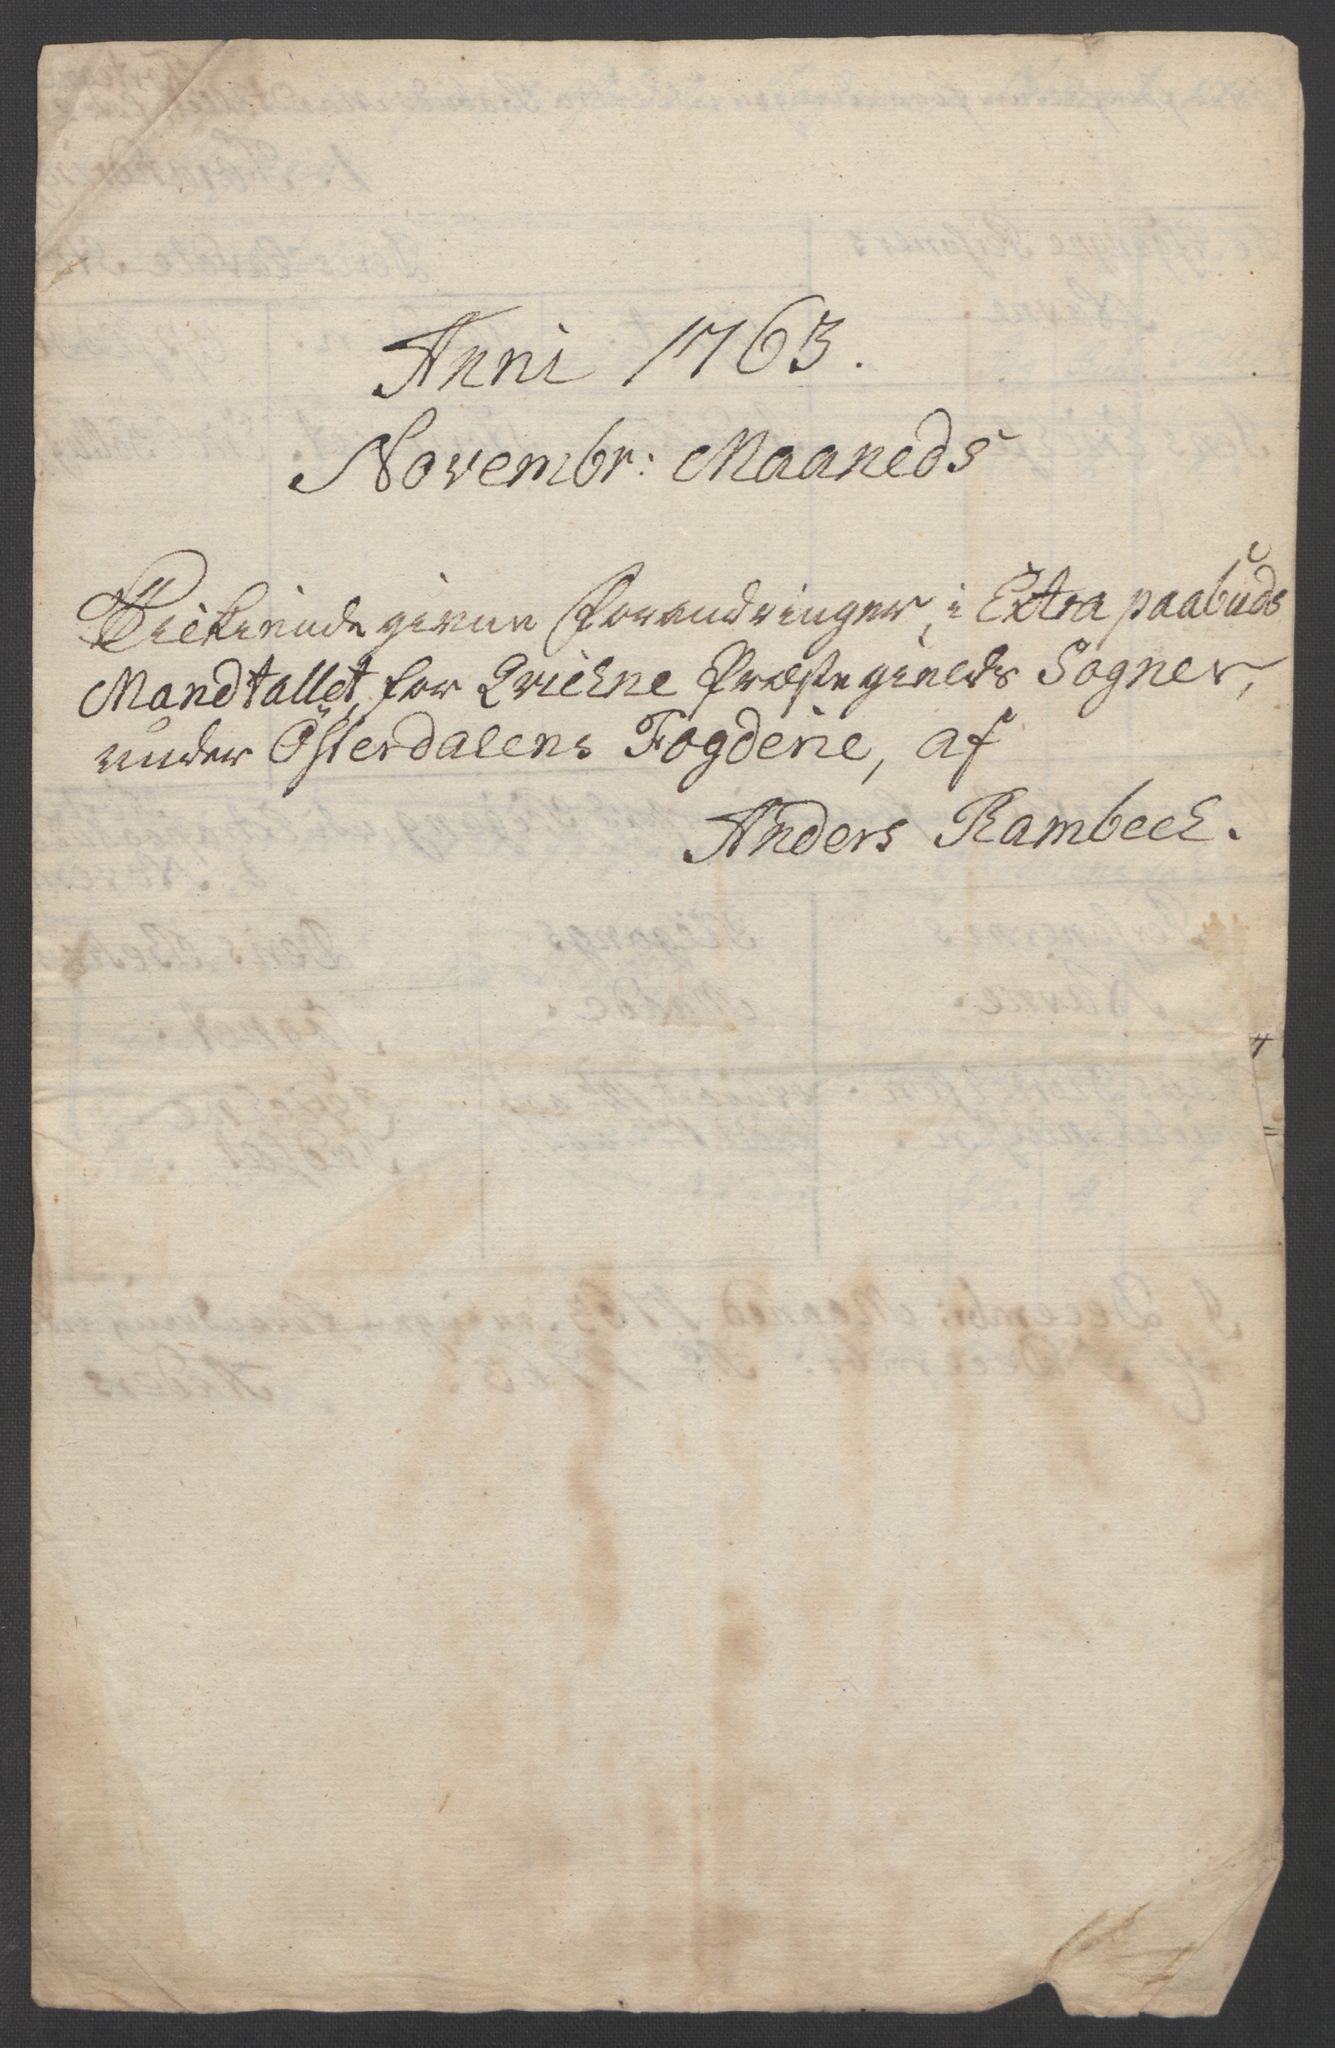 Anni 1763.
Novembr: Maaneds
Tilkiende givne Forandringer, i Extra paabuds
Mandtallet, for Qviekne Præstegields Sogner,
under Österdalens Fogderie, af
Anders Rambeck.